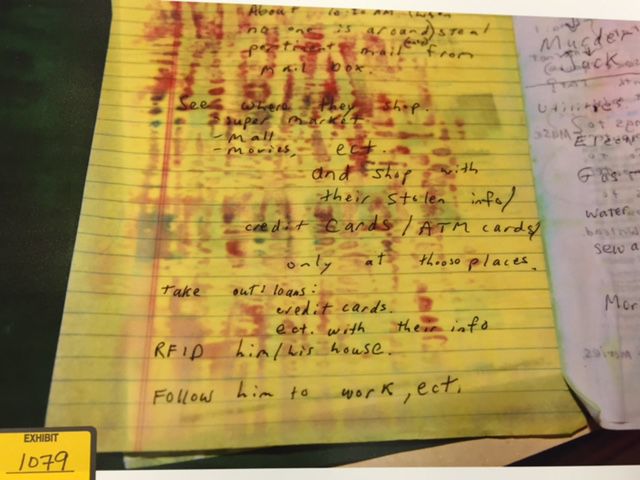 About 10:30 AM (when
no one is around) steal
pertinent mail (all) from
mail box.
See where they shop.
-super market
-mall
-movies, ect.
and shop with
their stolen info/
credit cards/ATM cards/
only at thooso places.
Take out: loans:
credit cards.
ect. with their info
RFID him/his house.
Follow him to work, ect.
Jack
Utilities
Gas
water
sewa
Mor
EXHIBIT
1079